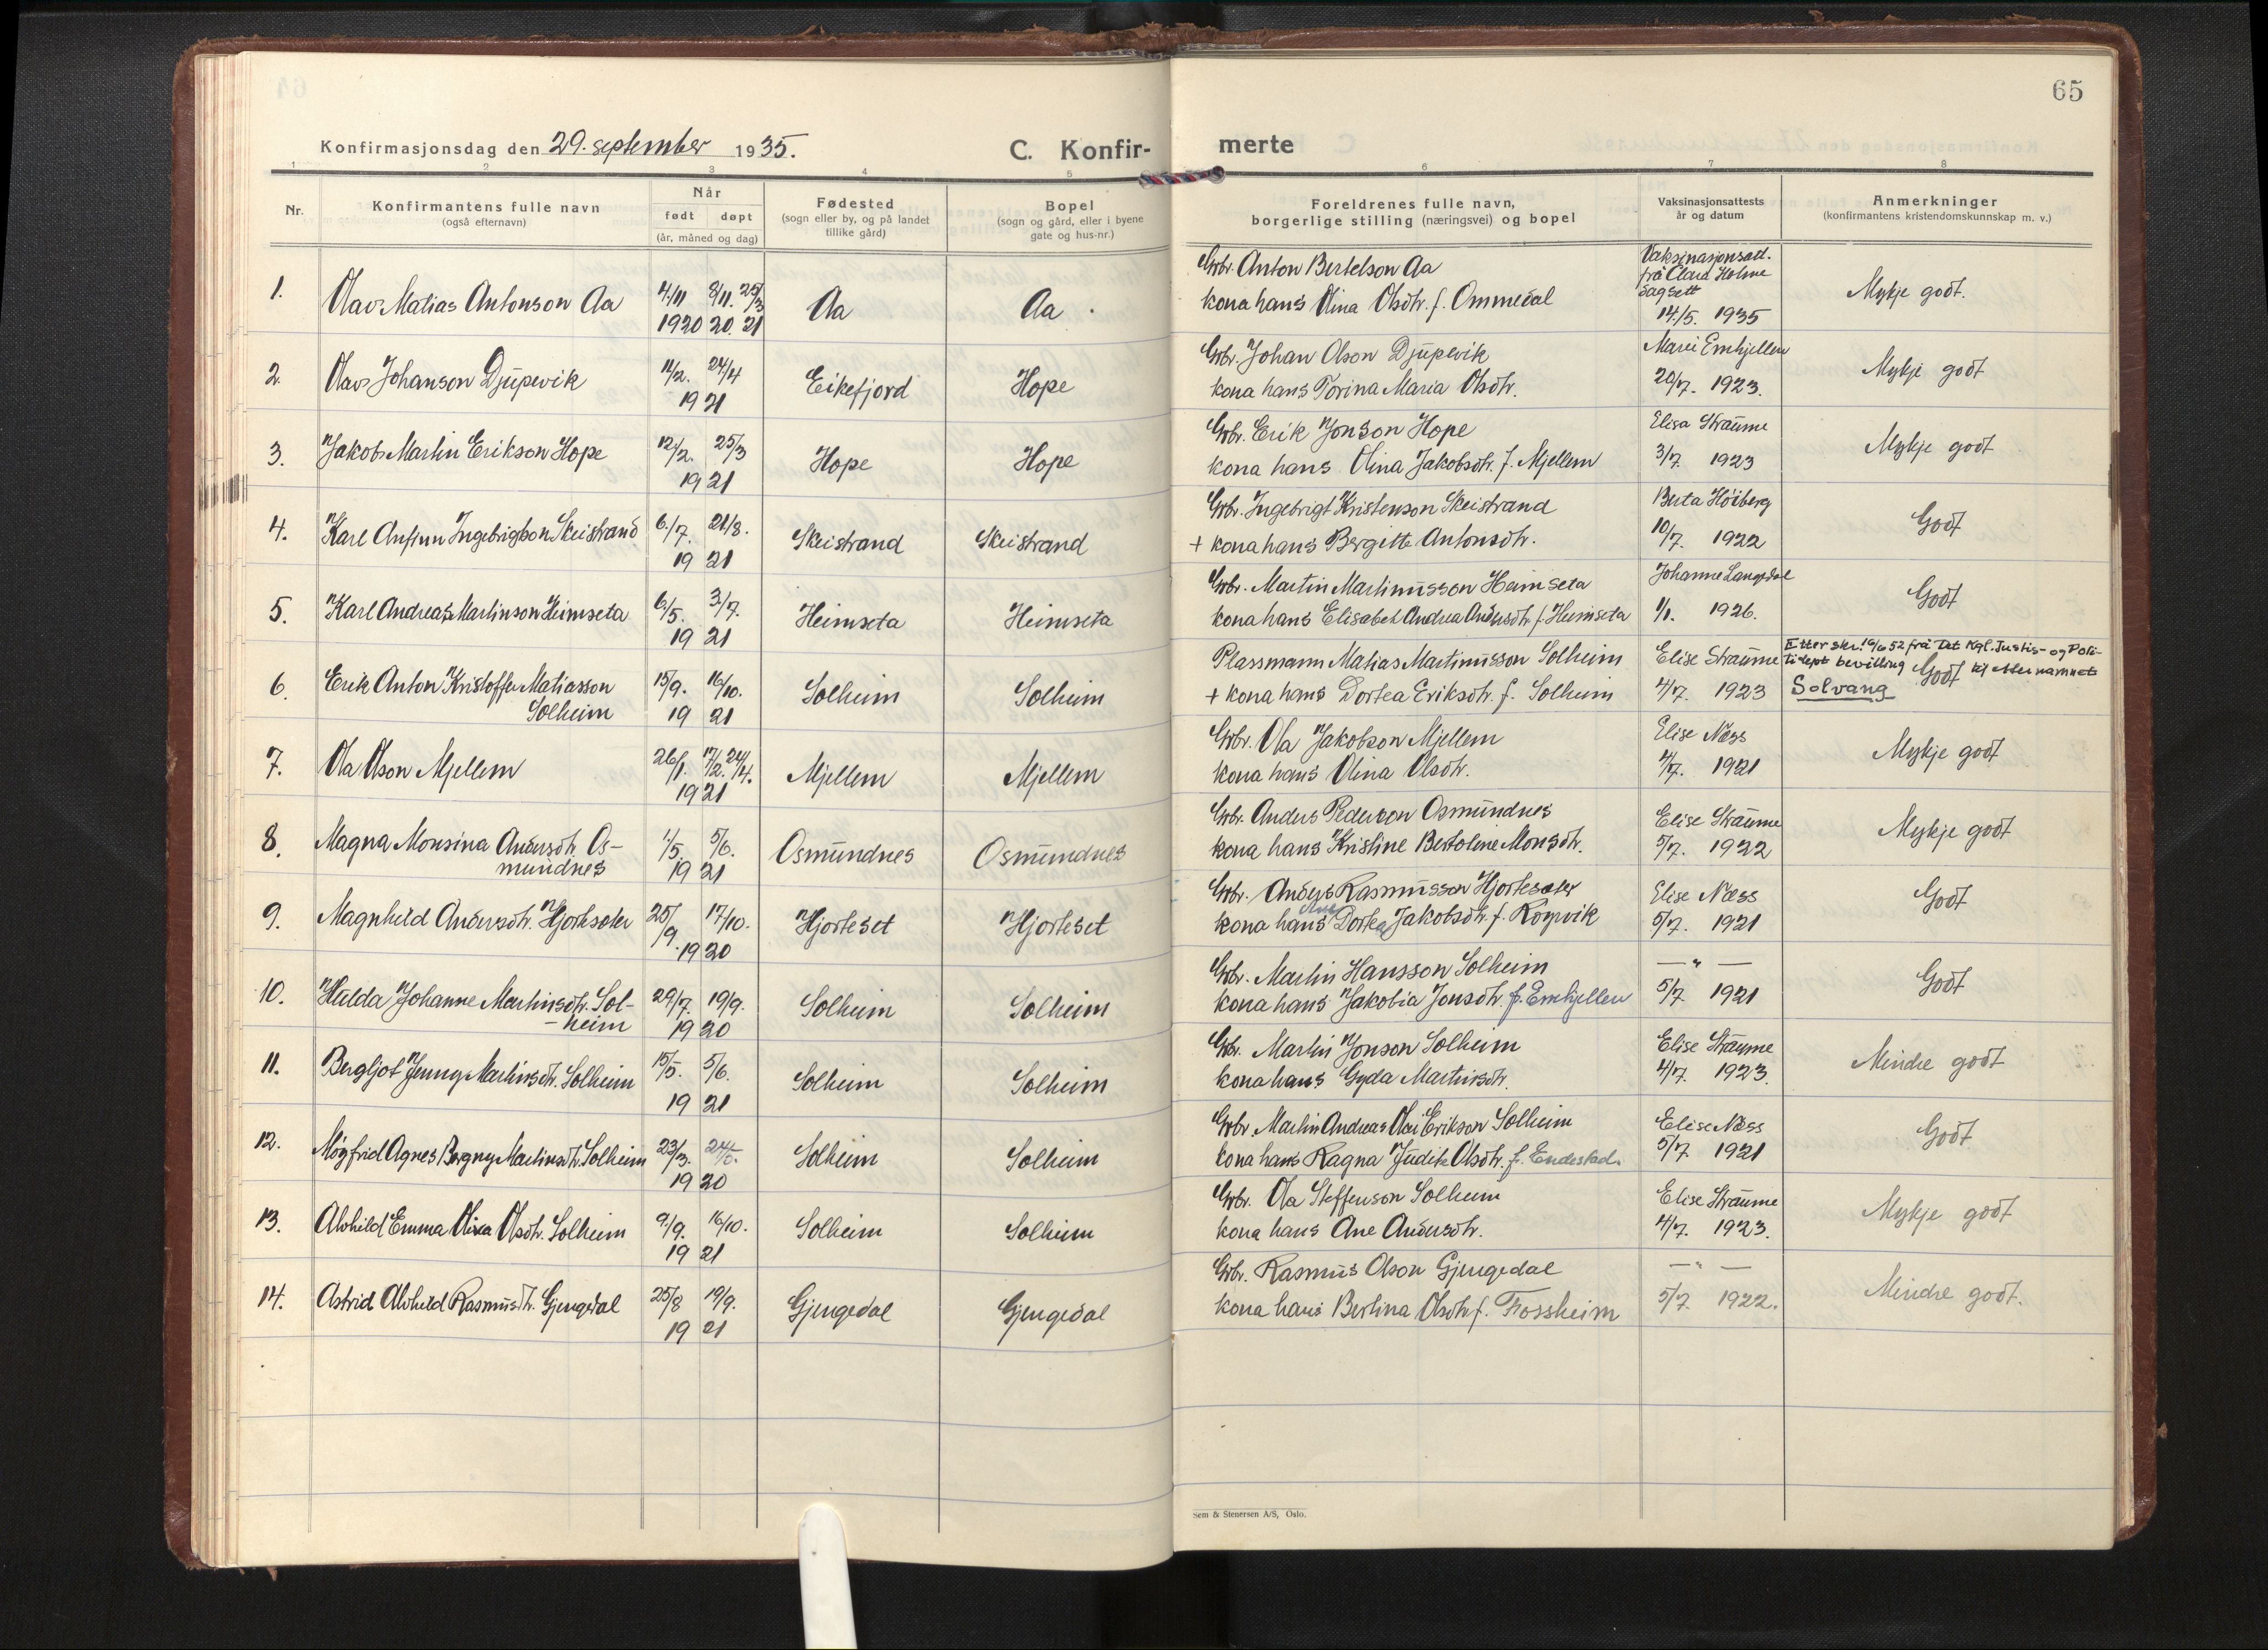 65
Konfirmasjonsdag den 29. september 1935.
C. Konfir-
merte
1 2 3 4 5 6 7 8
Nr.
Konfirmantens fulle navn
(også efternavn)
Når
født døpt
(år, måned og dag)
Fødested
(sogn eller by, og på landet
tillike gård)
Bopel
(sogn og gård, eller i byene
gate og hus-nr.)
Foreldrenes fulle navn,
borgerlige stilling (næringsvei) og bopel
Vaksinasjonsattests
år og datum
Anmerkninger
(konfirmantens kristendomskunnskap m. v.)
1. Olav Matias Antonson Aa 4/11 1920 8/11. 20. 25/3 21 Aa Aa
Grbr. Anton Bertelson Aa
kona hans Olina Olsdtr. f. Ommedal
Vaksinasjonsatt.
frå Olard Holme
dagsett
14/5. 1935
Mykje godt.
2. Olav Johanson Djupevik 11/2. 24/4 1921 Eikefjord Hope
Grbr. Johan Olson Djupevik
kona hans Torina Maria Olsdtr.
Marie Emhjellen
20/7. 1923.
Mykje godt
3. Jakob Martin Erikson Hope 12/2. 25/3 1921 Hope Hope
Grbr. Erik Jonson Hope
kona hans Olina Jakobsdtr. f. Mjellem
Elisa Straume
3/7. 1923
Mykje godt
4. Karl Anfinn Ingebrigtson Skeistrand 6/7. 21/8. 1921 Skeistrand Skeistrand
Grbr. Ingebrigt Kristenson Skeistrand
+ kona hans Bergitte Antonsdtr.
Berta Höiberg
10/7. 1922
Godt
5. Karl Andreas Martinson Heimseta 6/5. 3/7. 1921 Heimseta Heimseta
Grbr. Martin Martinusson Heimseta
kona hans Elisabet Andrea Andersdtr. f. Heimseta
Johanne Langedal
1/1. 1926.
Godt
6. Erik Anton Kristoffer Matiasson
Solheim 15/9. 16/10. 1921 Solheim Solheim
Plassmann Matias Martinusson Solheim
+ kona hans Dortea Eriksdtr. f. Solheim
Elise Straume
4/7. 1923
Etter skr. 19/6 52 frå Det Kgl. Justis- og Poli-
tidept bevilling til etternamnet
Solvang
Godt
7. Ola Olson Mjellem 26/1. 17/2. 24/4. 1921 Mjellem Mjellem
Grbr. Ola Jakobson Mjellem
kona hans Olina Olsdtr.
Elise Næss
4/7. 1921
Mykje godt
8. Magna Monsina Andersdtr. Os-
mundnes 1/5. 5/6. 1921 Osmundnes Osmundnes
Grbr. Anders Pederson Osmundnes
kona hans Kristine Bertoline Monsdtr.
Elise Straume
5/7. 1922
Mykje godt
9. Magnhild Andersdtr. Hjorteseter 25/9. 17/10. 1920 Hjorteset Hjorteset
Grbr. Anders Rasmusson Hjorteseter
kona hans Dortea Jakobsdtr. f. Röyrvik
Elise Næss
5/7. 1921
Godt
10. Hulda Johanne Martinsdtr. Sol-
-heim 29/7. 19/9. 1920 Solheim Solheim
Grbr. Martin Hansson Solheim
kona hans Jakobia Jonsdtr. f. Emhjellen
— " —
5/7 1921
Godt
11. Bergljot Jenny Martinsdtr. Solheim 15/5. 5/6. 1921 Solheim Solheim
Grbr. Martin Jonson Solheim
kona hans Gyda Martinsdtr.
Elise Straume
4/7. 1923.
Mindre godt
12. Möyfrid Agnes Bergny Martinsdtr. Solheim 23/3. 24/5. 1920 Solheim Solheim
Grbr. Martin Andreas Olai Erikson Solheim
kona hans Ragna Judite Olsdtr. f. Endestad.
Elise Næss
5/7 1921
Godt
13. Alvhild Emma Olixa Olsdtr. Solheim 9/9. 16/10. 1921 Solheim Solheim
Grbr. Ola Steffenson Solheim
kona hans Ane Andersdtr.
Elise Straume
4/7. 1923.
Mykje godt
14. Astrid Alvhild Rasmusdtr. Gjengedal 25/8 19/9. 1921 Gjengedal Gjengedal
Grbr. Rasmus Olson Gjengedal
kona hans Berlina Olsdtr f. Fossheim
— " —
5/7 1922.
Mindre godt.
Sem & Stenersen A/S, Oslo.